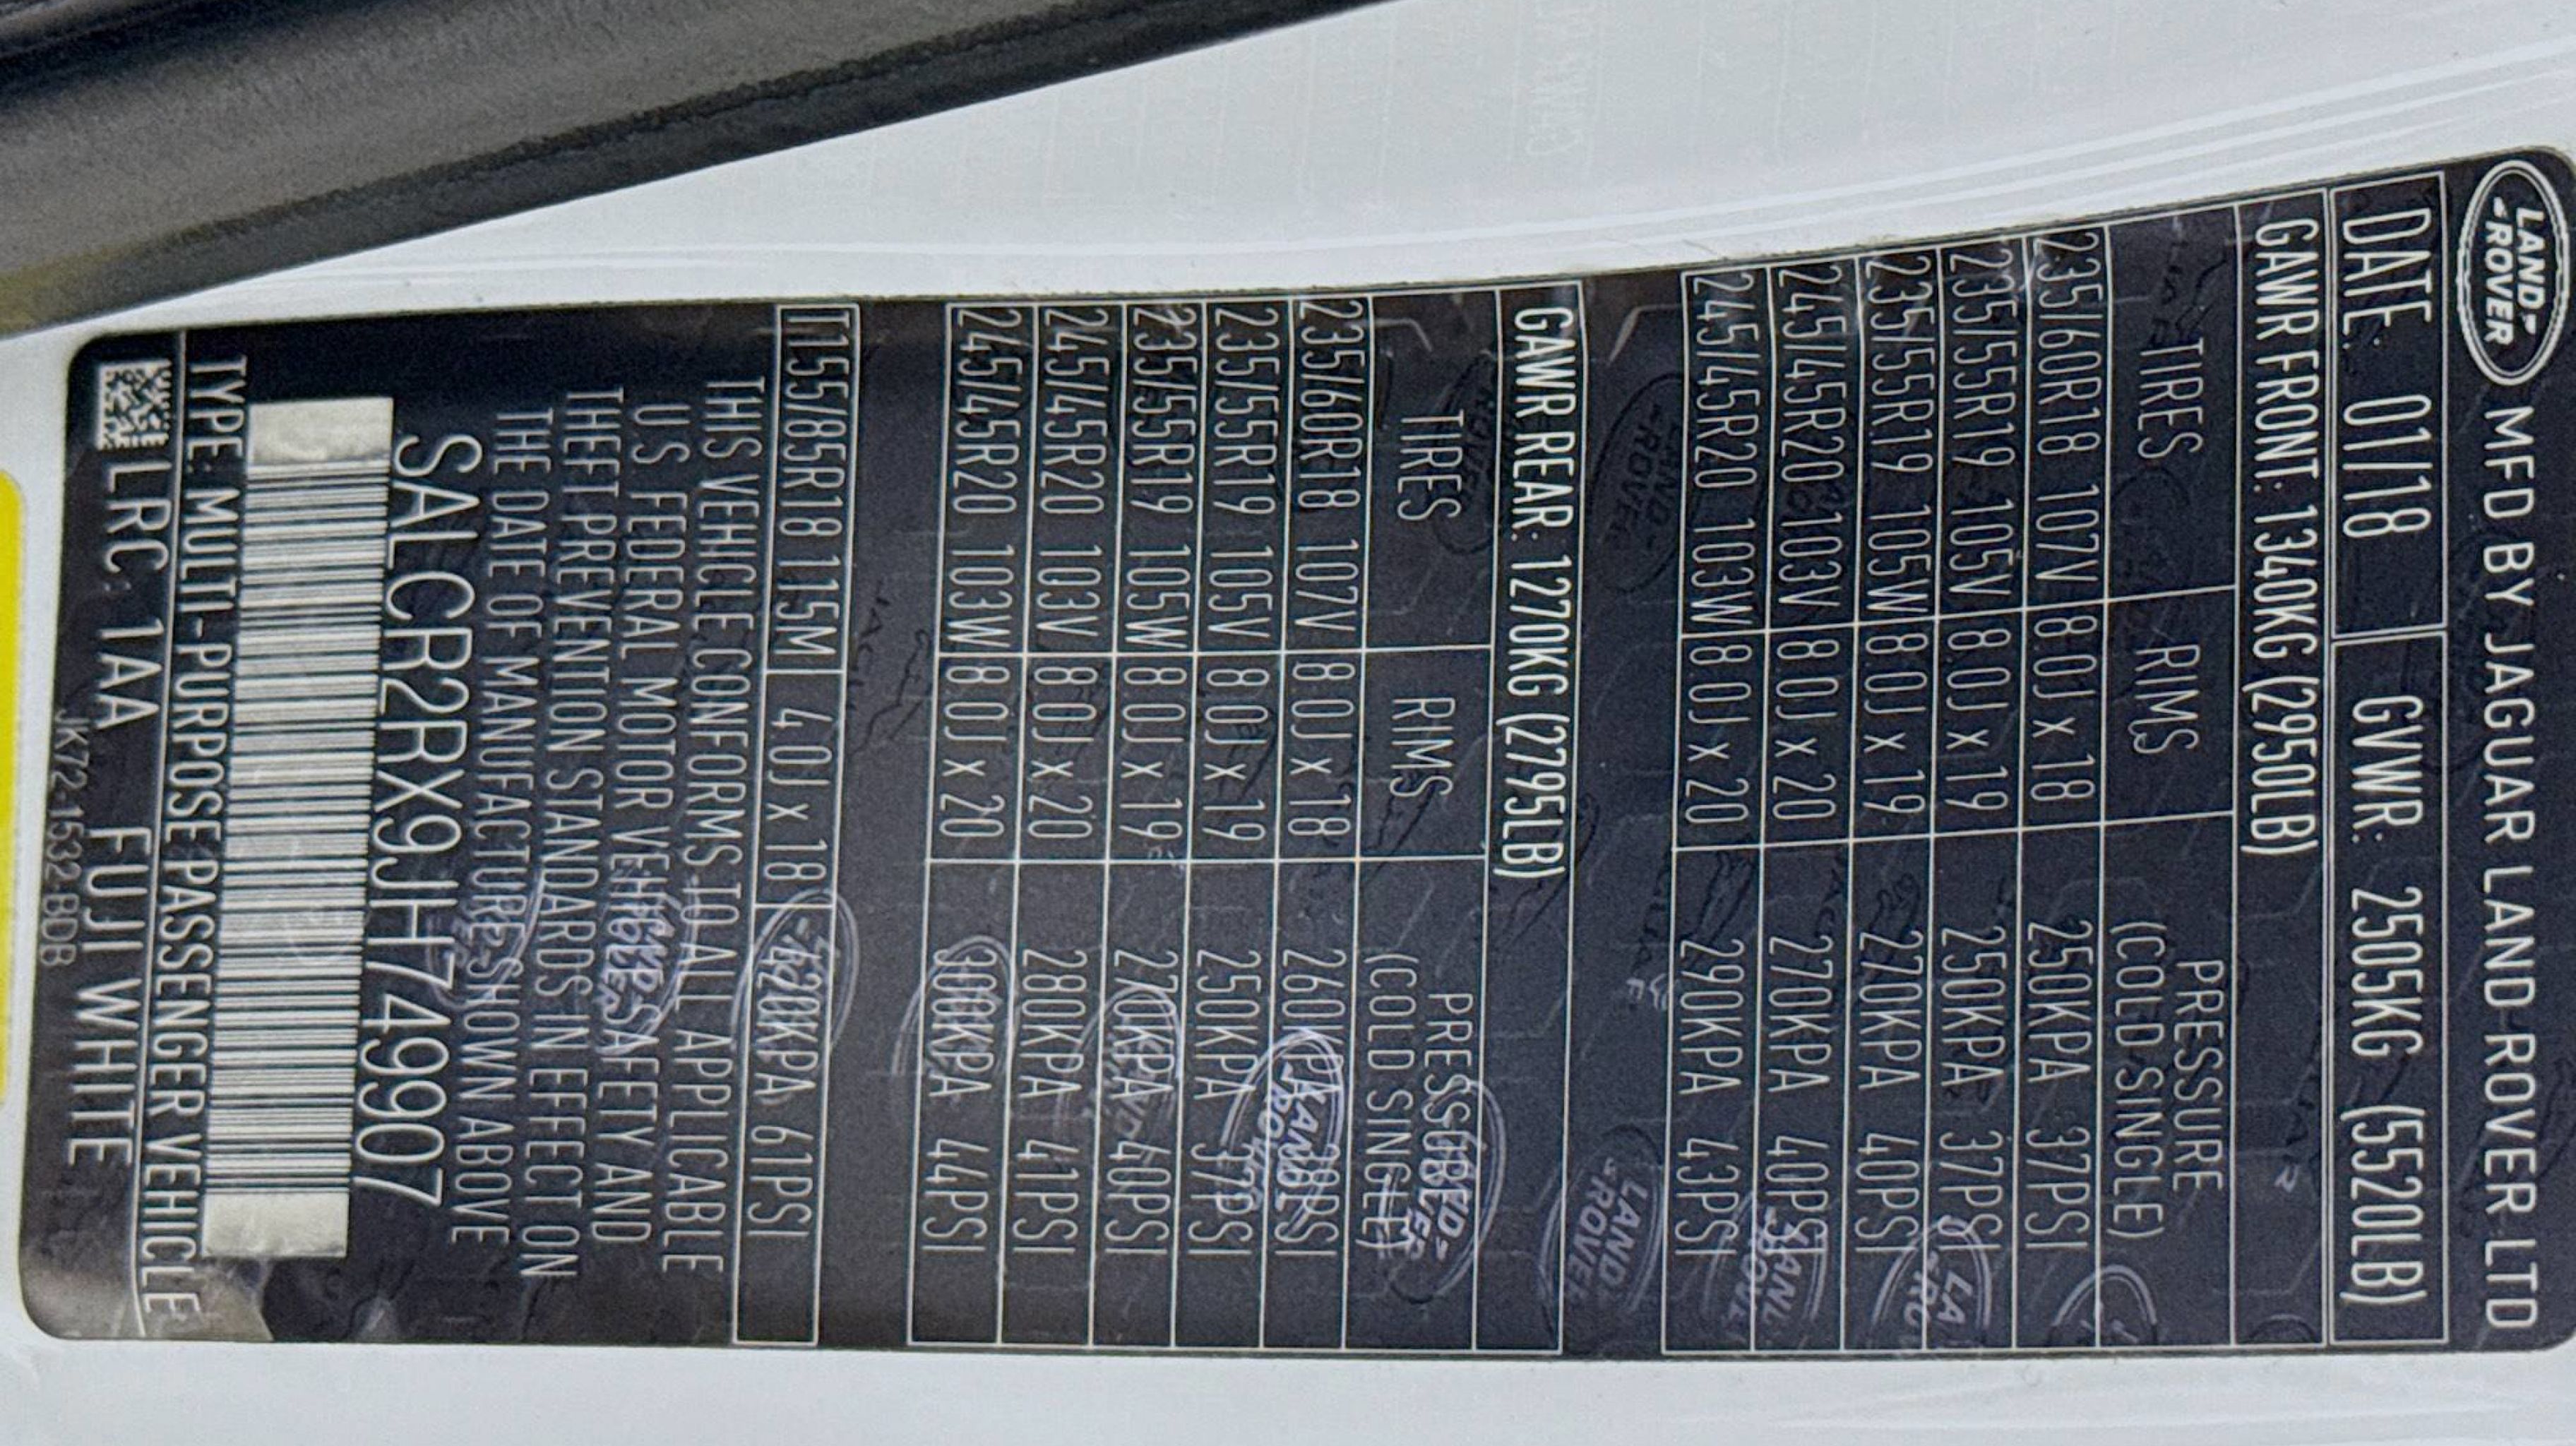 LAND ROVER MFD BY JAGUAR LAND ROVER LTD
DATE: 01/18 GVWR: 2505KG (5520LB)
GAWR FRONT: 1340KG (2950LB)
TIRES RIMS PRESSURE (COLD SINGLE)
235/60R18 107V 8.0J x 18 250KPA 37PSI
235/55R19 105V 8.0J x 19 250KPA 37PSI
235/55R19 105W 8.0J x 19 270KPA 40PSI
245/45R20 103V 8.0J x 20 270KPA 40PSI
245/45R20 103W 8.0J x 20 290KPA 43PSI
GAWR REAR: 1270KG (2795LB)
TIRES RIMS PRESSURE (COLD SINGLE)
235/60R18 107V 8.0J x 18 260KPA PSI
235/55R19 105V 8.0J x 19 250KPA 37PSI
235/55R19 105W 8.0J x 19 270KPA 40PSI
245/45R20 103V 8.0J x 20 280KPA 41PSI
245/45R20 103W 8.0J x 20 300KPA 44PSI
T155/85R18 115M 4.0J x 18 420KPA 61PSI
THIS VEHICLE CONFORMS TO ALL APPLICABLE
U.S FEDERAL MOTOR VEHICLE SAFETY AND
THEFT PREVENTION STANDARDS IN EFFECT ON
THE DATE OF MANUFACTURE SHOWN ABOVE
SALCR2RX9JH749907
TYPE: MULTI-PURPOSE PASSENGER VEHICLE
LRC: 1AA FUJI WHITE
JK72-1532-BDB